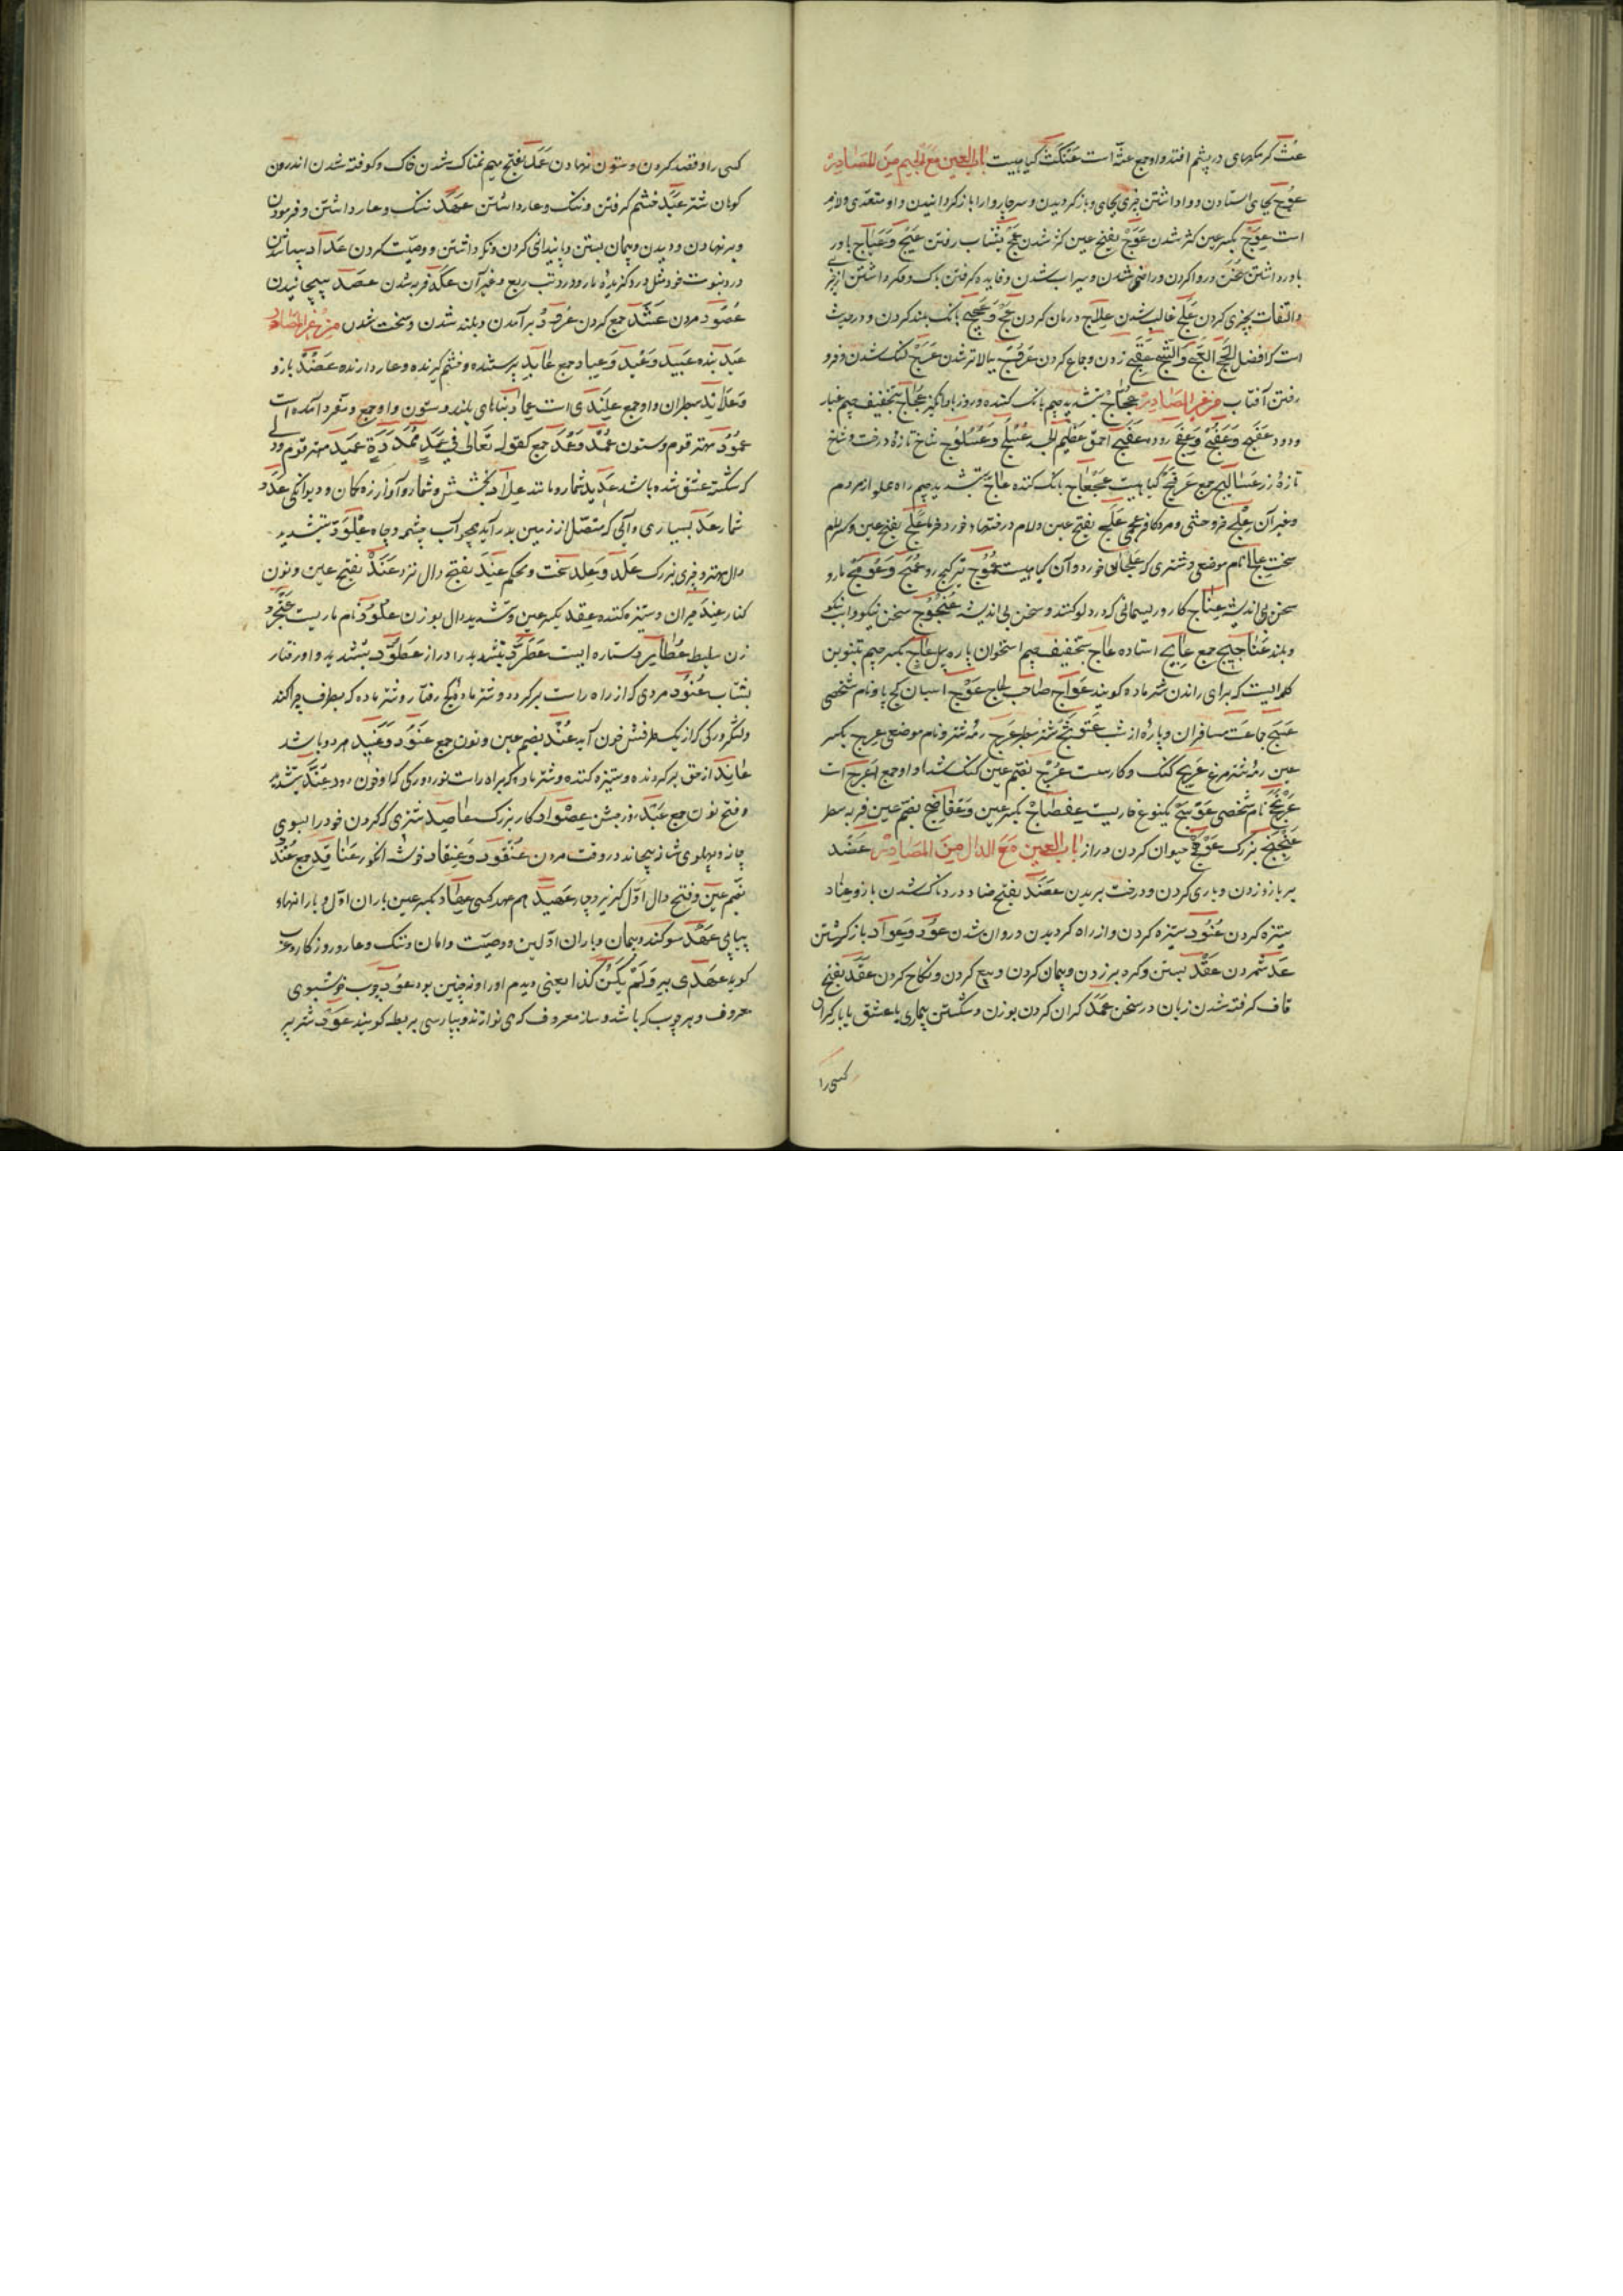 عث کرمکهای در پشم افتد و او جمع عثة است عنکث کیاهیست باب العین مع الجیم من المصادر
عوج بجای استادن و واداشتن چیزی بجای و باز کردیدن و سر چاروا را باز کردانیدن و او متعدی و لازم
است عوج بکسر عین کژ شدن عوج بفتح عین کژ شدن عج بشتاب رفتن عیج و باور
باور داشتن روا کردن و راضی شدن و سیراب شدن و فایده کرفتن باک و فکر داشتن از چیزی
و التفات بچیزی کردن علج غالب شدن علاج درمان کردن عج و عجیج بانک بلند کردن و در حدیث
است که افضل الحج العج والثج زدن و جماع کردن بالاتر شدن لنک شدن و فرو
رفتن آفتاب من غیر المصادر عجاج بتشدید جیم بانک کننده و روز باد انکیز عجاج بتخفیف جیم غبار
و دود روده احمق عظیم الجثه عسلج و عسلوج شاخ تازه درخت و شاخ
تازه رز عسالیج جمع عرفج کیاهیست عجعاج بانک کننده عالج بتشدید جیم راه مردم
و غیر آن علج خر وحشی و مرد کافر عجمی علج بفتح عین و لام درختهای خورد خرما علج بفتح عین و کسر لام
سخت عالج نام موضعی و شتری که علجان خورد و آن کیاهیست عموج رو عمج مار و
سخن بی اندیشه عناج کار و ریسمانی که در دلو کنند و سخن بی اندیشه عنجوج سخن نیکو و اسب نیکو
و بلند عناجیج جمع عایج استاده عاج بتخفیف جیم استخوان پاره پیل عاج بکسر جیم بتنوین
کلمه ایست که برای راندن شتر ماده کویند عواج صاحب عاج عوج اسبان کج پا و نام شخصی
جماعت مسافران و پاره از شب شتر سطبر عرج رمه شتر و نام موضعی عرج بکسر
عین رمه شتر عریج لنک و کار سست عرج بضم عین لنک شد او او جمع اعرج است
نام شخصی یکنوع خاریست عفضاج بکسر عین و بضم عین فربه سطبر
بزرک حیوان کردن دراز باب العین مع الدال من المصادر عضد
بر بازو زدن و یاری کردن و درخت بریدن عضد بفتح ضاد دردناک شدن بازو عناد
ستیزه کردن عنود ستیزه کردن و از راه کردیدن و روان شدن عود و عواد باز کشتن
عد شمردن عقد بستن و کره بر زدن و پیمان کردن و بیع کردن و نکاح کردن عقد بفتح
قاف کرفته شدن زبان در سخن عمد کران کردن بوزن و شکستن بیماری یا عشق یا بار کران
کسی را
کسی را و قصد کردن و ستون نهادن عمد بفتح میم نمناک شدن خاک و کوفته شدن اندرون
کوهان شتر عبد خشم کرفتن و ننک و عار داشتن عهد ننک و عار داشتن و فرمودن
و بر نهادن و دیدن و پیمان بستن و پایندانی کردن و نکو داشتن و وصیت کردن عداد پیدا شدن
درد بنوبت خود مثل درد کزیده مار و درد تب ربع و غیر آن عکد فربه شدن عصد پیچانیدن
عصود مردن عشد جمع کردن عرد برآمدن و بلند شدن و سخت شدن من غیر المصادر
عبد بنده عبید و عبد و عباد جمع عابد پرستنده و خشم کیرنده و عار دارنده عضد بازو
و علاند سطبران و او جمع علندی است عماد بناهای بلند و ستون و او جمع و مفرد آمده است
عمود مهتر قوم و ستون عمد و عمد جمع کقوله تعالی فی عمد ممددة عمید مهتر قوم و دلی
که شکسته عشق شده باشد عدید شمار و مانند عداد بخشش و شمار و آواز زه کمان و دیوانکی عدد
شمار عد بسیاری و آبی که متصل از زمین بدر آید همچو آب چشمه و چاه علود بتشدید
دال مهتر و چیزی بزرک علد و علد سخت و محکم عند بفتح دال نزد عند بفتح عین و نون
کنار عنید میران و ستیزه کننده بکسر عین و تشدید دال بوزن علود نام ماریست عنجرد
زن سلیط عطارد ستاره ایست عطرد بتشدید را دراز عطود بتشدید واو رفتار
بشتاب عنود مردی که از راه راست برکردد و شتر ماده کج رفتار و شتر ماده که بطرف چرا کند
و رکی که از یک طرفش خون آید عند بضم عین و نون جمع عنود و عنید هر دو باشد
عاند از حق برکردنده و ستیزه کننده و شتر ماده که براه راست نرود و رکی که از او خون رود عند بتشدید
و فتح نون جمع عید روز جشن عصواد کار بزرک عاصد شتری که کردن خود را بسوی
چاز و پهلوی شانه پیچاند در وقت مردن عنقود و عنقاد خوشه انکور عناقید جمع عندد
بضم عین و فتح دال اول کزیر و چاره عهید هم عهد کسی عهاد بکسر عین باران اول و بارانهای
پیاپی عهد سوکند و پیمان و باران اولین و وصیت و امان و ننک و عار و روزکار و عرب
کوید عهدی به و لم یکن کذا یعنی دیدم او را و نه چنین بود عود چوب خوشبوی
معروف و هر چوب که باشد و ساز معروف که می نوازند و بپارسی بربط کویند عود شتر پیر